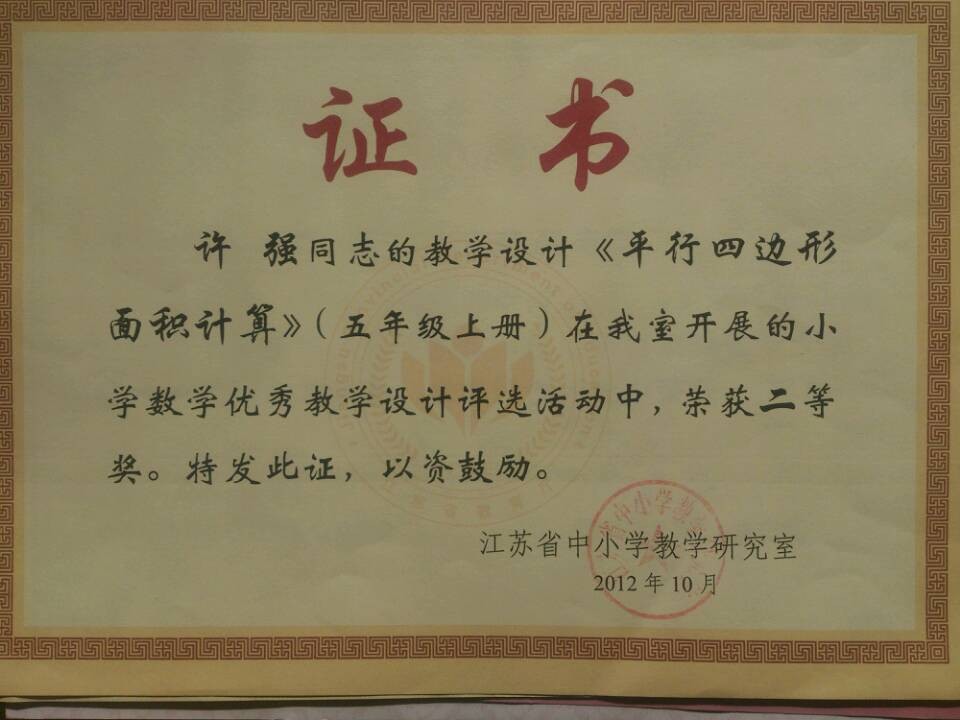 证 书
许 强同志的教学设计《平行四边形
面积计算》(五年级上册)在我室开展的小
学数学优秀教学设计评选活动中,荣获二等
奖。特发此证,以资鼓励。
江苏省中小学教学研究室
2012 年 10 月